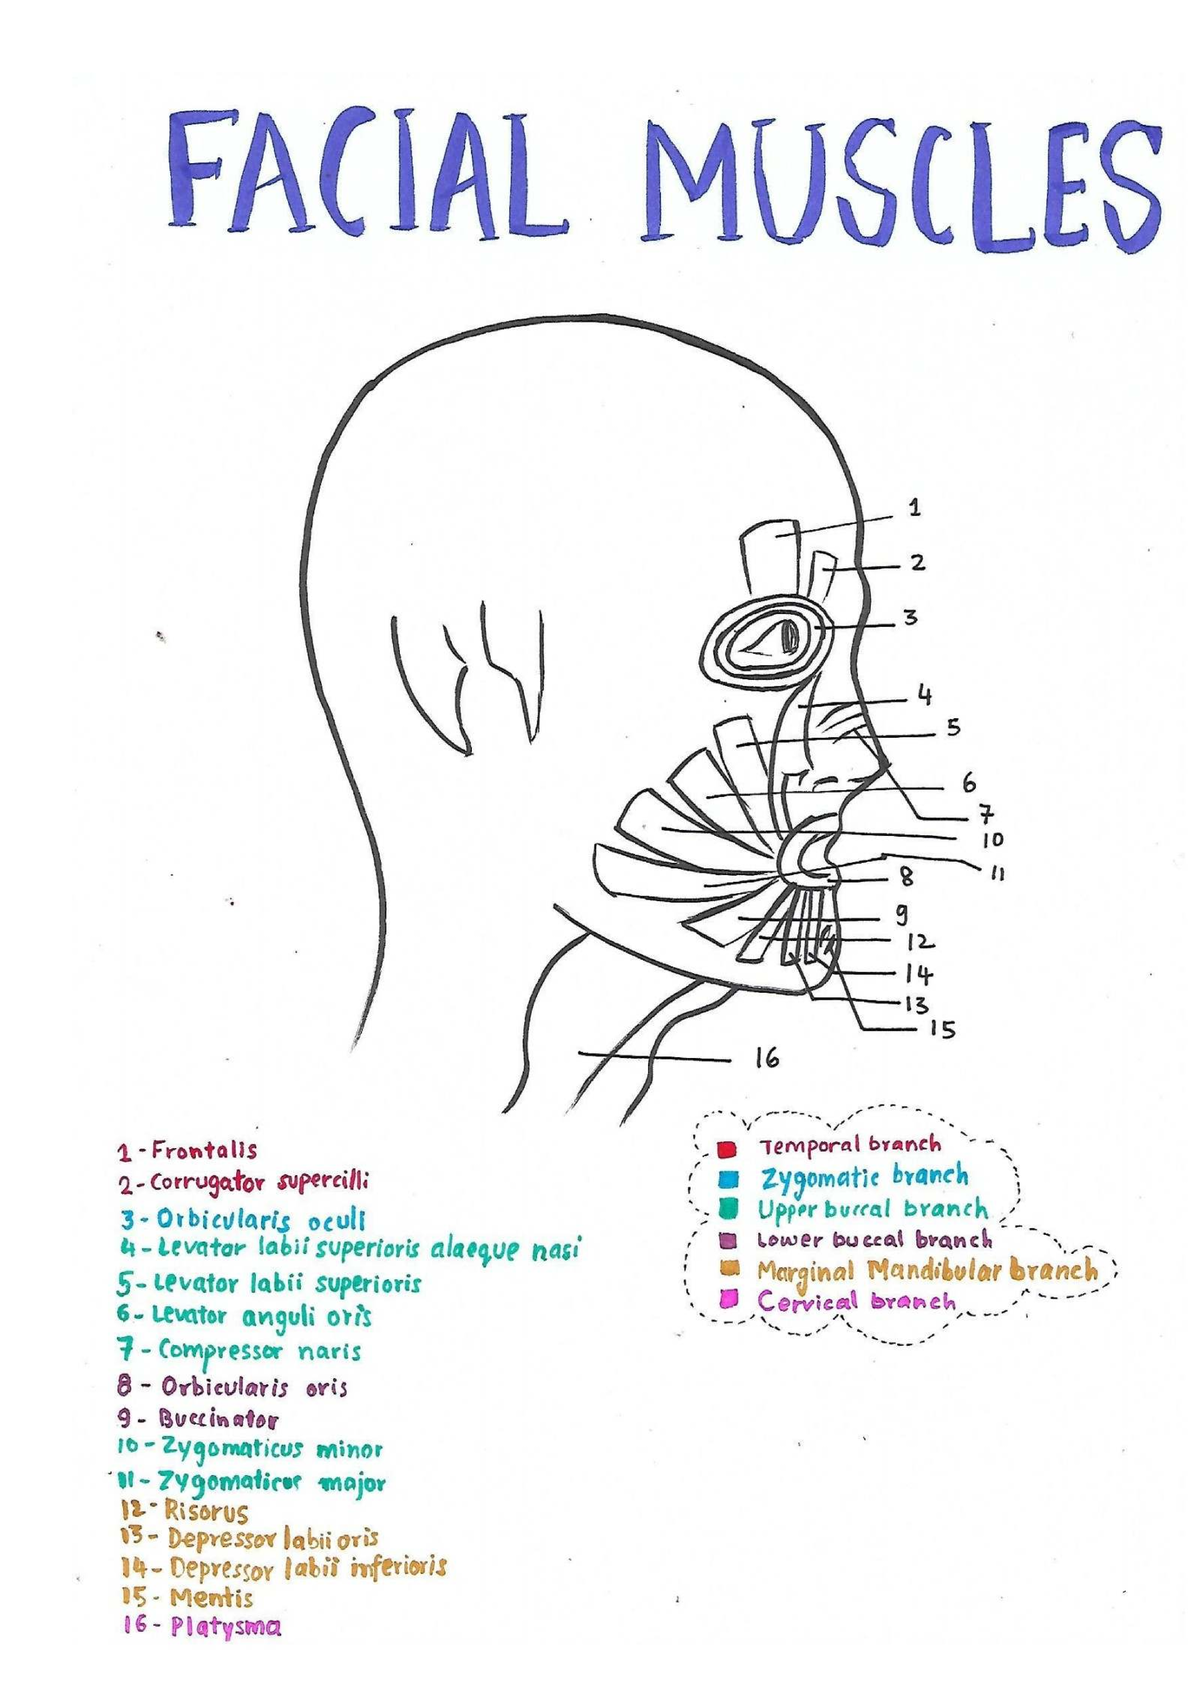 FACIAL MUSCLES
1
2
3
4
5
6
7
10
11
8
9
12
14
13
15
16
1 - Frontalis
2 - Corrugator supercilli
3 - Orbicularis oculi
4 - Levator labii superioris alaeque nasi
5 - Levator labii superioris
6 - Levator anguli oris
7 - Compressor naris
8 - Orbicularis oris
9 - Buccinator
10 - Zygomaticus minor
11 - Zygomaticus major
12 - Risorus
13 - Depressor labii oris
14 - Depressor labii inferioris
15 - Mentis
16 - Platysma
Temporal branch
Zygomatic branch
Upper buccal branch
Lower buccal branch
Marginal Mandibular branch
Cervical branch